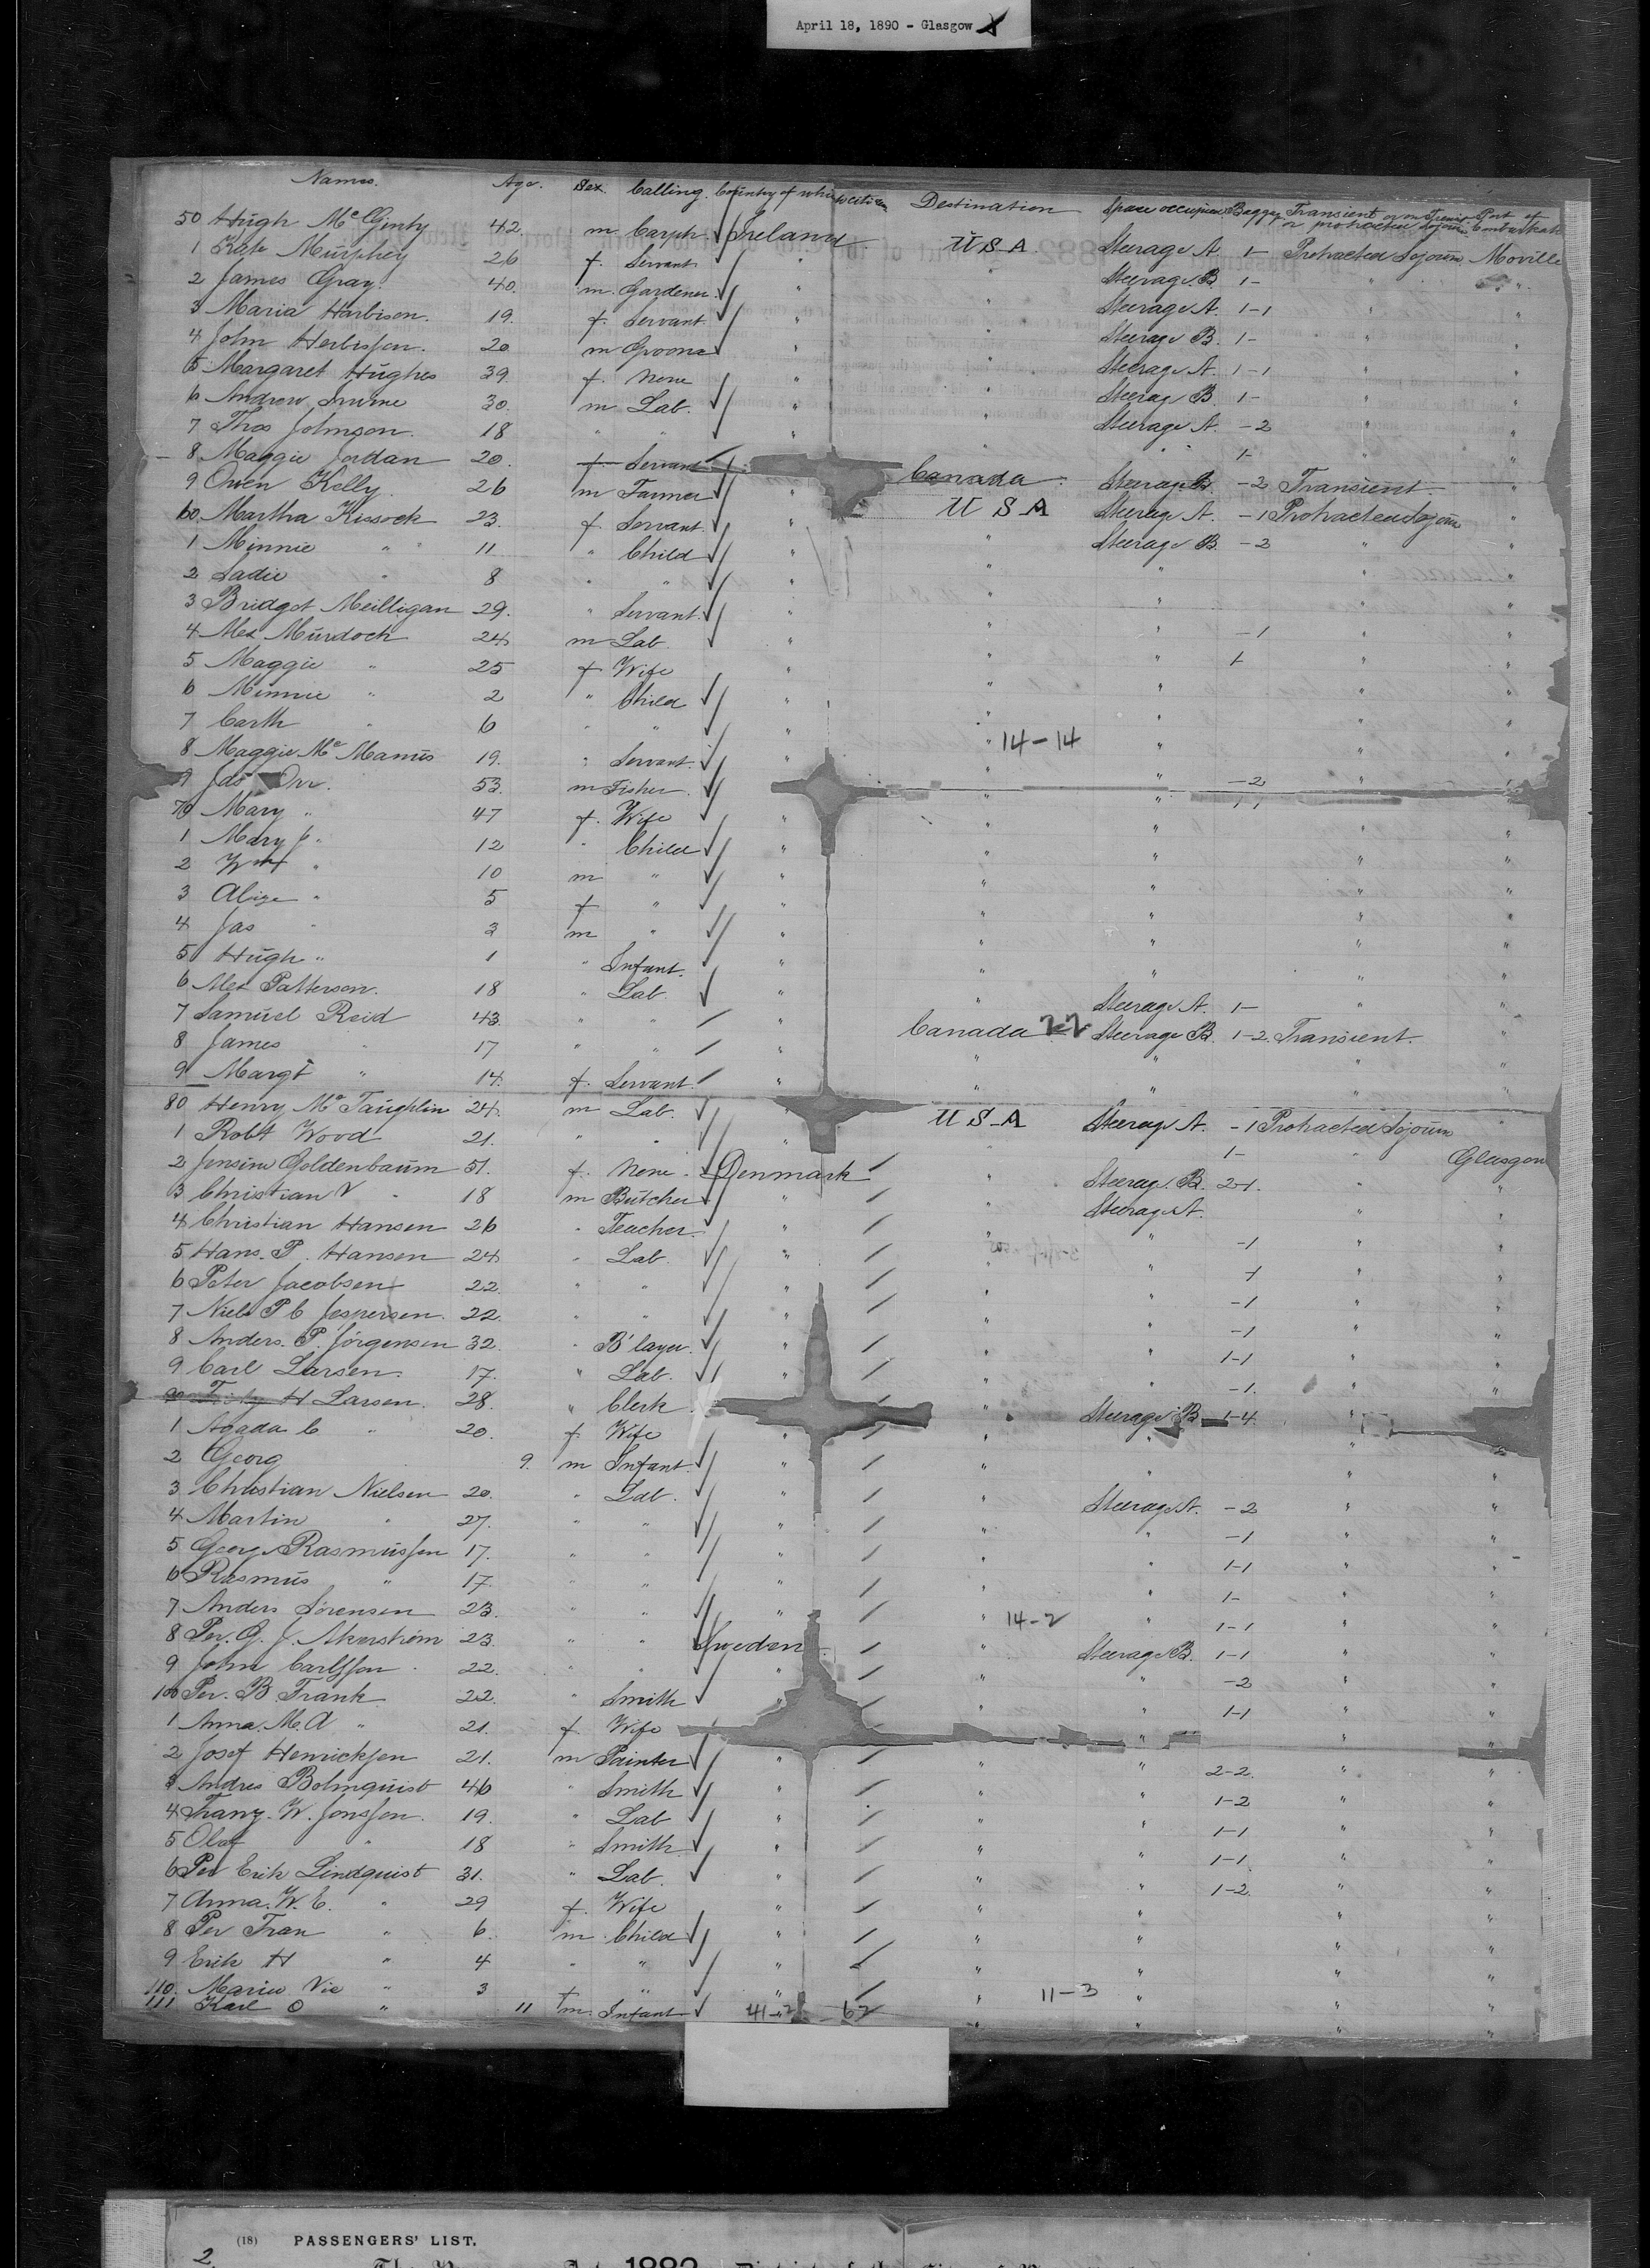 April 18, 1890 - Glasgow X
Names. Age. Sex. Calling. Country of which citizen Destination Space occupied Baggage Transient or in Transit or protracted sojourn Port of Embarkation
50 Hugh McGinty 42. m Carptr. Ireland U S A Steerage A. 1- Protracted Sojourn Moville
1 Kate Murphey 26 f. Servant " " Steerage B. 1- " "
2 James Gray 40. m. Gardener " " Steerage A. 1-1 " "
3 Maria Harbison. 19. f. Servant " " Steerage B. 1- " "
4 John Herbisson. 20 m Groom " " Steerage A. 1-1 " "
5 Margaret Hughes 39 f. None " " Steerage B. 1- " "
6 Andrew Irvine 30. m Lab. " " Steerage A. -2 " "
7 Thos Johnson. 18 " " " " " 1- " "
8 Maggie Jordan 20. f Servant Canada Steerage B. -2 Transient "
9 Owen Kelly 26 m Farmer " U S A Steerage A. -1 Protracted Sojourn "
60 Martha Kissock 23. f. Servant " " Steerage B. -2 " "
1 Minnie " 11 " Child " " " " "
2 Sadie " 8 " " " " " " "
3 Bridget Meilligan 29. " Servant. " " " -1 " "
4 Alex Murdoch 24 m Lab. " " " 1 " "
5 Maggie " 25 f Wife " " " " "
6 Minnie " 2 " Child " " " " "
7 Carth " 6 " " " " 14-14 " " "
8 Maggie McManus 19. " Servant. " " -2 " "
9 Jas Orr. 53. m Fisher. " " 1-1
70 Mary " 47 f. Wife " " " " "
1 Mary J. " 12 " Child " " " " "
2 Wm " 10 m " " " " " "
3 Alice " 5 f " " " " " "
4 Jas " 3 m " " " " " "
5 Hugh " 1 " Infant. " " " " "
6 Alex Patterson. 18 " Lab. " " Steerage A. 1- " "
7 Samuel Reid 43. " " " Canada 22 Steerage B. 1-2. Transient. "
8 James " 17 " " " " " " "
9 Margt " 14. f. Servant. " " " " "
80 Henry McLaughlin 24. m Lab. U S A Steerage A. -1 Protracted Sojourn "
1 Robt Wood 21. " " " " 1- " Glasgow
2 Jensine Goldenbaum 51. f. None. Denmark " Steerage B. 2-1. " "
3 Christian V " 18 m Butcher " " Steerage A. " "
4 Christian Hansen 26 " Teacher. " " " -1 " "
5 Hans. P. Hansen 24 " Lab. " " " -1 " "
6 Peter Jacobsen 22. " " " " " -1 " "
7 Niels P C Jespersen. 22. " " " " " -1 " "
8 Anders. P. Jörgensen 32. " B'layer. " " " 1-1 " "
9 Carl Larsen. 17. " Lab. " " " -1. " "
H Larsen. 28. " Clerk " Steerage B 1-4. "
1 Agada C " 20. f. Wife " " " " "
2 Georg 9. m Infant. " " " " "
3 Christian Nielsen 20. " Lab. " " Steerage A. -2 " "
4 Martin " 27. " " " " " -1 " "
5 Georg Rasmussen 17. " " " " " 1-1 " "
6 Rasmus " 17. " " " " " 1- " "
7 Anders Sörensen 23. " " " " 14-2 " 1-1 " "
8 Per. G. J. Akerström 23. " " Sweden " Steerage B. 1-1 " "
9 John Carlsson. 22. " " " " " -2 " "
100 Per. B Frank 22. " Smith " " " 1-1 " "
1 Anna. M. A " 21. f. Wife "
2 Josef Henricksen 21. m Painter " " " 2-2. " "
3 Andres Bolmquist 46 " Smith " " " 1-2 " "
4 Franz. W. Jonsson. 19. " Lab " " " 1-1 " "
5 Olof " 18 " Smith " " " 1-1. " "
6 Per Erik Lindquist 31. " Lab. " " " 1-2. " "
7 Anna. W. E. " 29 f. Wife " " " " "
8 Per Fran " 6. m. Child " " " " "
9 Erik H " 4 " " " " " " "
110. Maria Vic " 3 f " " " 11-3 " " "
111 Karl O " 11 m. Infant 41-21 62 " " " "
2. (18) PASSENGERS' LIST.
1882